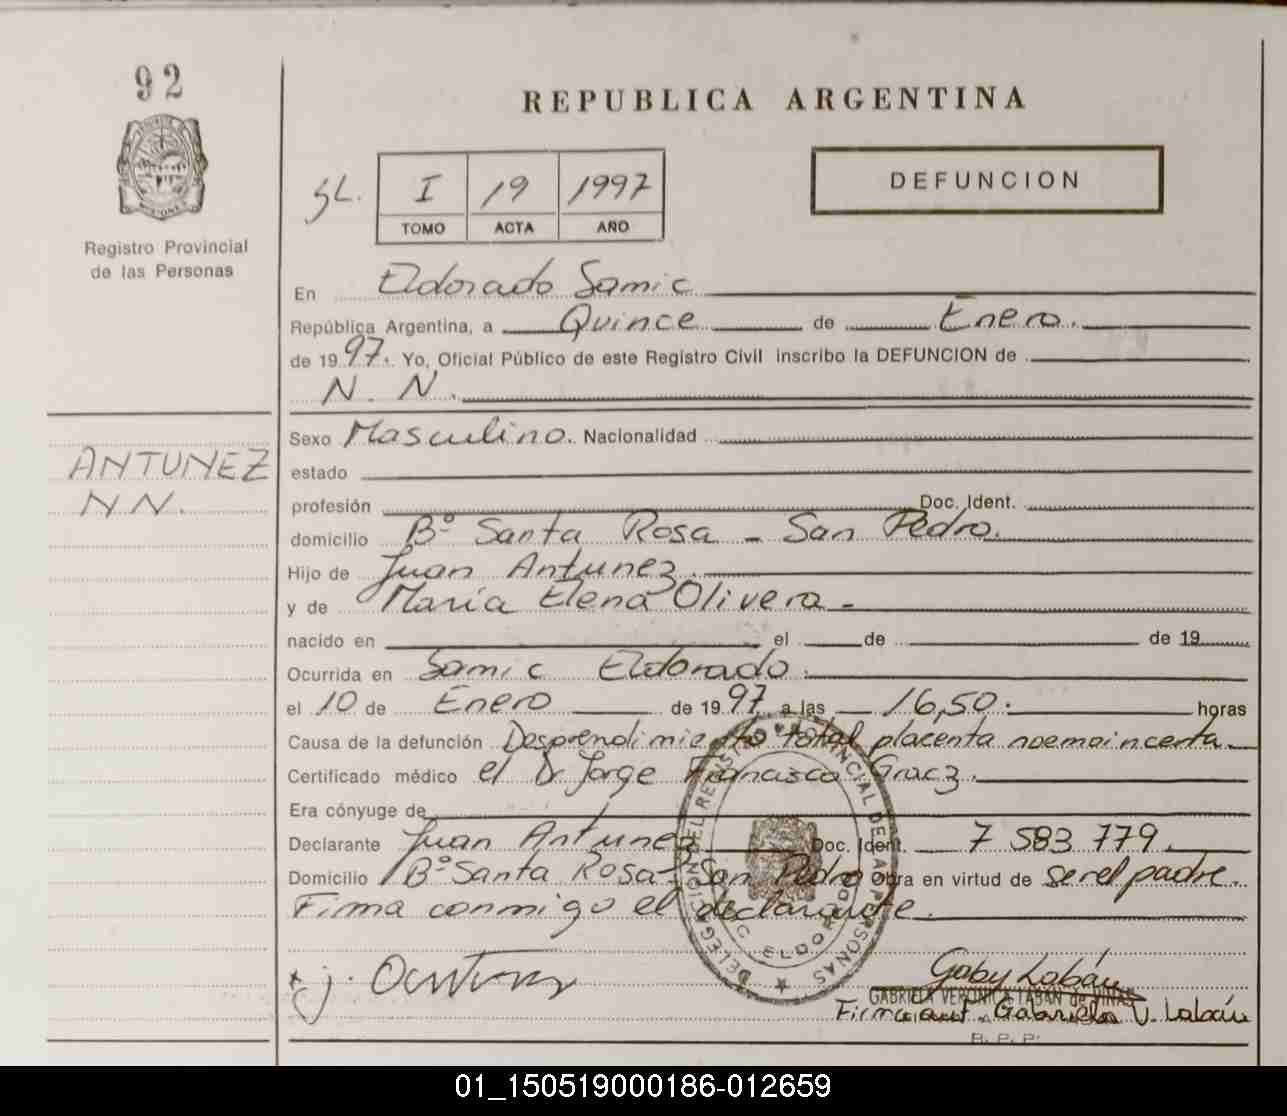 92
REPUBLICA ARGENTINA
DEFUNCION
SL. I 19 1997
TOMO ACTA AÑO
Registro Provincial
de las Personas
En Eldorado Samic
República Argentina, a Quince de Enero.
de 1997. Yo, Oficial Público de este Registro Civil inscribo la DEFUNCION de
N. N.
ANTUNEZ
N N.
Sexo Masculino. Nacionalidad
estado
profesión Doc. Ident.
domicilio Bº Santa Rosa - San Pedro.
Hijo de Juan Antunez.
y de María Elena Olivera -
nacido en el de de 19
Ocurrida en Samic Eldorado.
el 10 de Enero de 1997 a las 16,50. horas
Causa de la defunción Desprendimiento total placenta
Certificado médico el Dr Jorge Francisco Gracz.
Era cónyuge de
Declarante Juan Antunez Doc. Ident. 7 583 779.
Domicilio Bº Santa Rosa - San Pedro Obra en virtud de ser el padre.
Firma conmigo el declarante.
DELEGACION DEL REGISTRO PROVINCIAL DE LAS PERSONAS
ELDORADO
Gaby Labán
GABRIELA VERONICA LABAN de VIÑAS
Firma aut. Gabriela V. Labán
R. P. P.
01_150519000186-012659